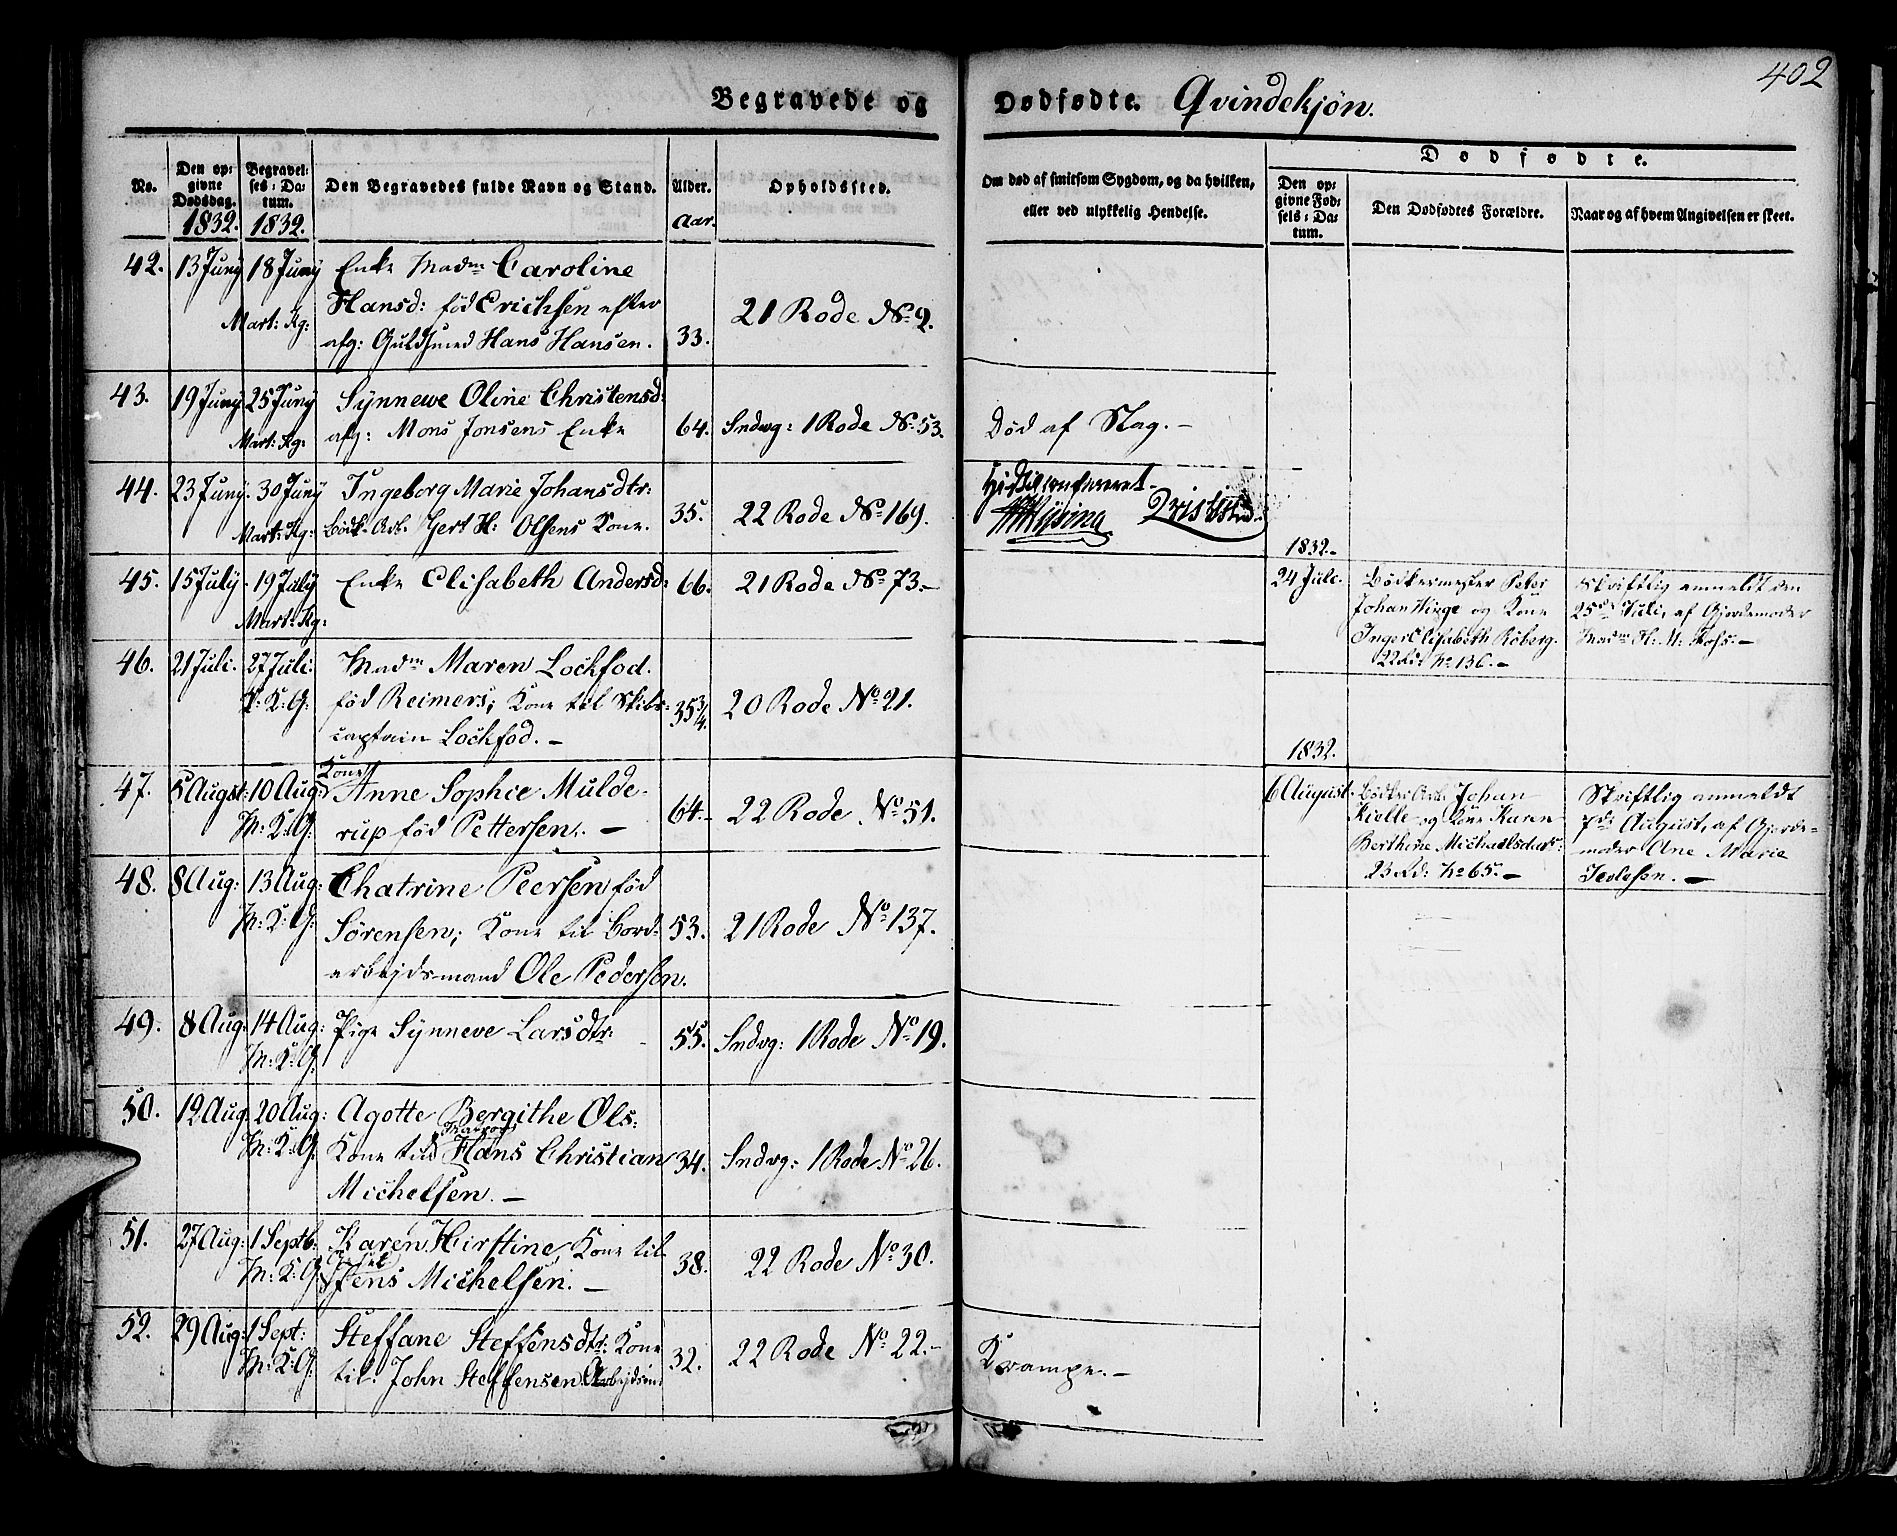 402
Begravede og Dødfødte. Qvindekjön.
No.
Den opgivne Dødsdag. 1832.
Begravelses-Datum. 1832.
Den Begravedes fulde Navn og Stand.
Alder. Aar.
Opholdssted.
Om død af smitsom Sygdom, og da hvilken,
eller ved ulykkelig Hendelse.
Dødfødte.
Den opgivne Fødsels-Datum.
Den Dødfødtes Forældre.
Naar og af hvem Angivelsen er skeet.
42. 13 Juny 18 Juny Enke Madm Caroline
Mart: Kg: Hansd: fød Erichsen efter 21 Rode No 2.
afg: Guldsmed Hans Hansen. 33.
43. 19 Juny 25 Juny Synnewe Oline Christensd:
Mart: Kg: afg: Mons Jonsens Enke 64. Sndvg: 1 Rode No 53. Död af Slag. –
44. 23 Juny. 30 Juny Ingeborg Marie Johansdtr:
Mart: Kg: Bödk. Arb. Gert H: Olsens Kone. 35. 22 Rode No 169.
Hidtil confereret.
1832.
45. 15 July. 19 July Enke Elisabeth Andersd: 66. 21 Rode No 73. –
Mart: Kg:
24 Juli. Bödkermester Peter
Johan Wigge og Kone
Inger Elisabeth Roberg.
22 Rd: No 136. –
Skriftlig anmeldt den
25de Juli, af Gjordemoder
Madm H. M.
46. 21 Juli. 27 Juli. Madm Maren Lockfod.
K: K: G: fød Reimers; Kone til Skibs- 35 3/4. 20 Rode No 21.
captain Lockfod. –
1832.
47. 5 Augst: 10 Aug: Kone Anne Sophie Mulde-
M: K: G: rup fød Pettersen. – 64. 22 Rode No 51.
6 August. Bödker Arb. Johan
Kielle og Kone Karen
Berthine Michaelsdatr:
23 Rd: No 65. –
Skriftlig anmeldt
7de August, af Gjorde-
moder Ane Marie
48. 8 Aug: 13 Aug: Chatrine Peersen fød
M: K: G: Sörensen; Kone til Bord- 53. 21 Rode No 137.
arbejdsmand Ole Pedersen.
49. 8 Aug: 14 Aug: Pige Synneve Larsdtr: 55. Sndvg: 1 Rode No 19.
M: K: G:
50. 12 Aug. 20 Aug: Agotte Bergithe Ols:
M: K: G: Kone til Hans Christian 34. Sndvg: 1 Rode No 26.
Michelsen. –
51. 27 Aug: 1 Septb: Karen Kirstine, Kone til
M: K: G: Jens Michelsen. – 38. 22 Rode No 30.
52. 29 Aug: 1 Sept: Steffane Steffensdtr: Kone
M: K: G: til John Steffensen Arbejdsm: 32. 22 Rode No 22. – Krampe. –